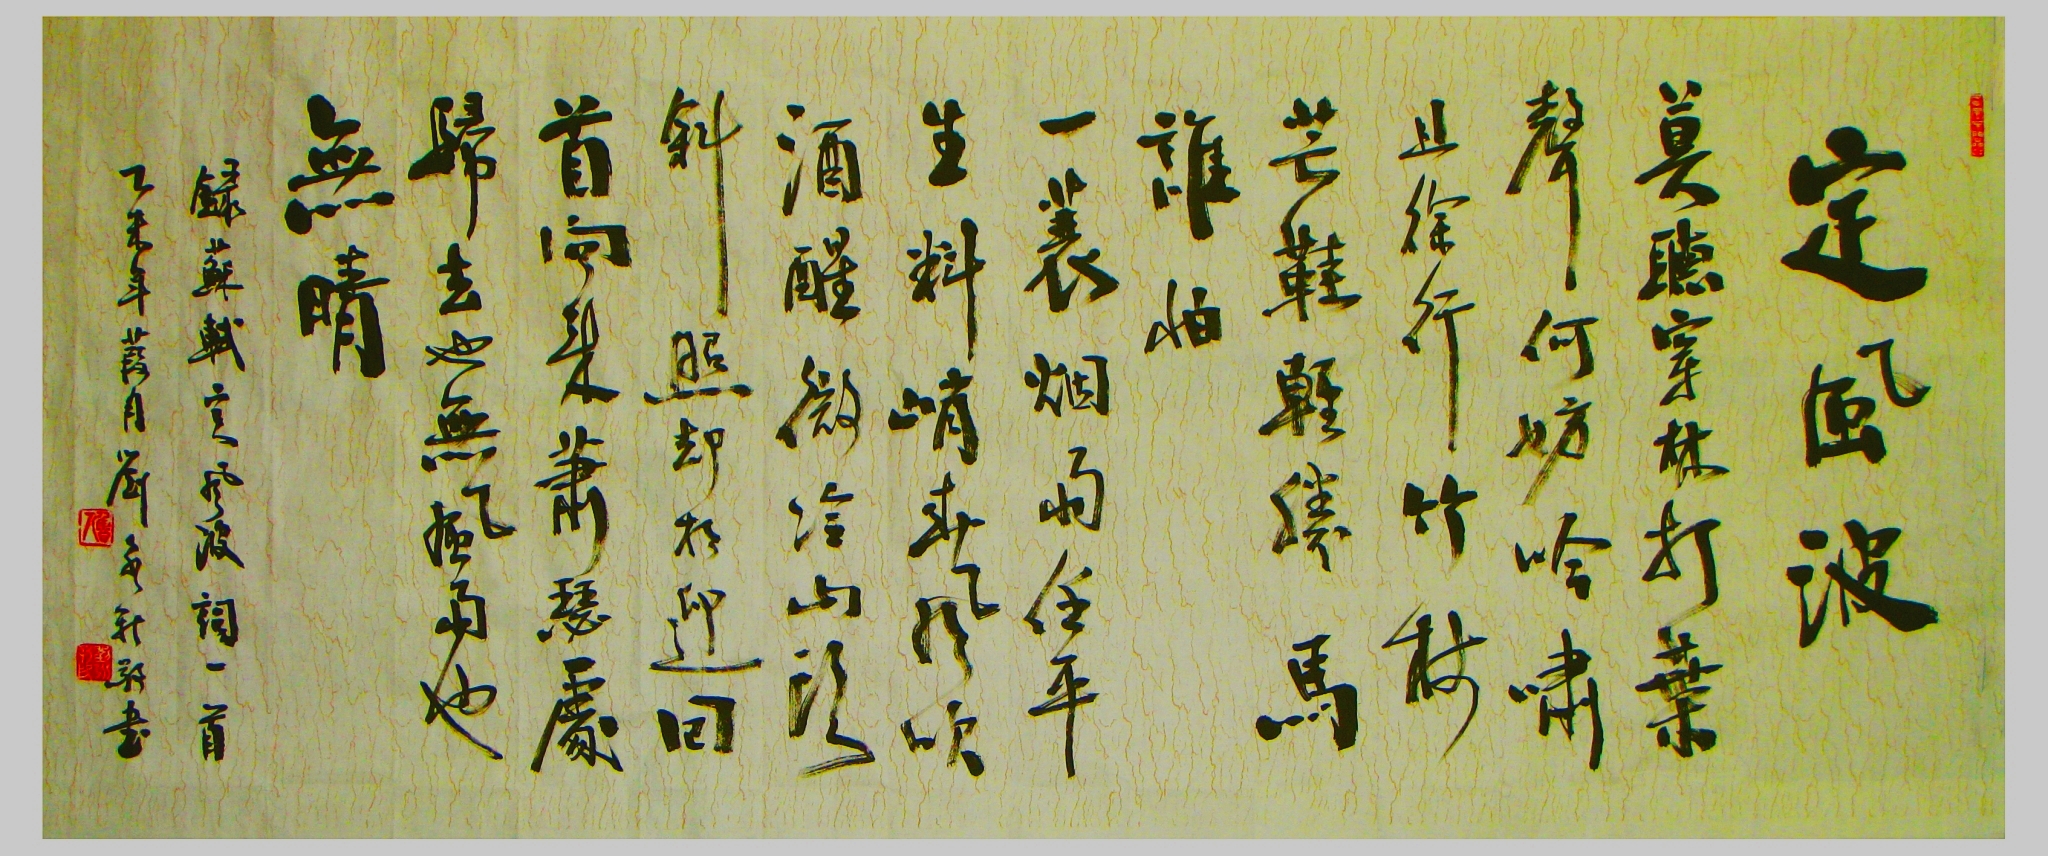 定風波
莫聽穿林打葉
聲何妨吟嘯
且徐行竹杖
芒鞋輕勝馬
誰怕
一蓑烟雨任平
生料峭春風吹
酒醒微冷山頭
斜照却相迎回
首向來蕭瑟處
歸去也無風雨也
無晴
錄蘇軾定風波詞一首
乙未年葭月劉書